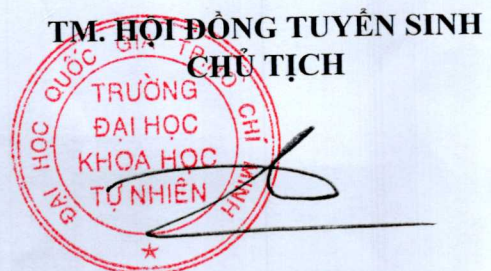 TM. HỘI ĐỒNG TUYỂN SINH
CHỦ TỊCH
ĐẠI HỌC QUỐC GIA TP. HỒ CHÍ MINH
TRƯỜNG
ĐẠI HỌC
KHOA HỌC
TỰ NHIÊN